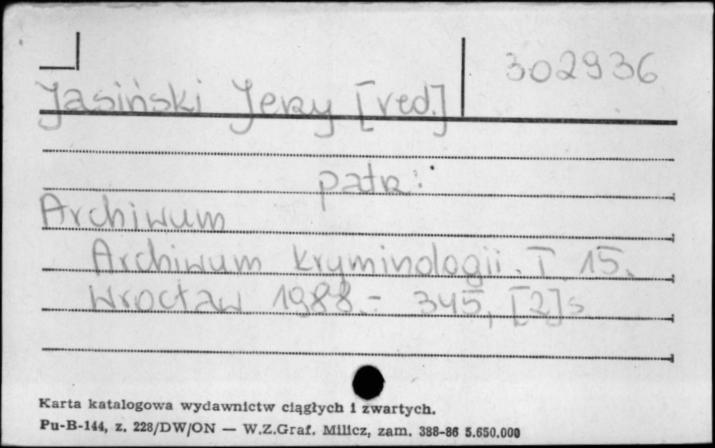 302936
Jasiński Jerzy [red.]
patrz:
Archiwum
Archiwum kryminologii. T. 15.
Wrocław 1988.- 345, [2]s
Karta katalogowa wydawnictw ciągłych i zwartych.
Pu-B-144, z. 228/DW/ON — W.Z.Graf. Milicz, zam. 388-86 5.650.000